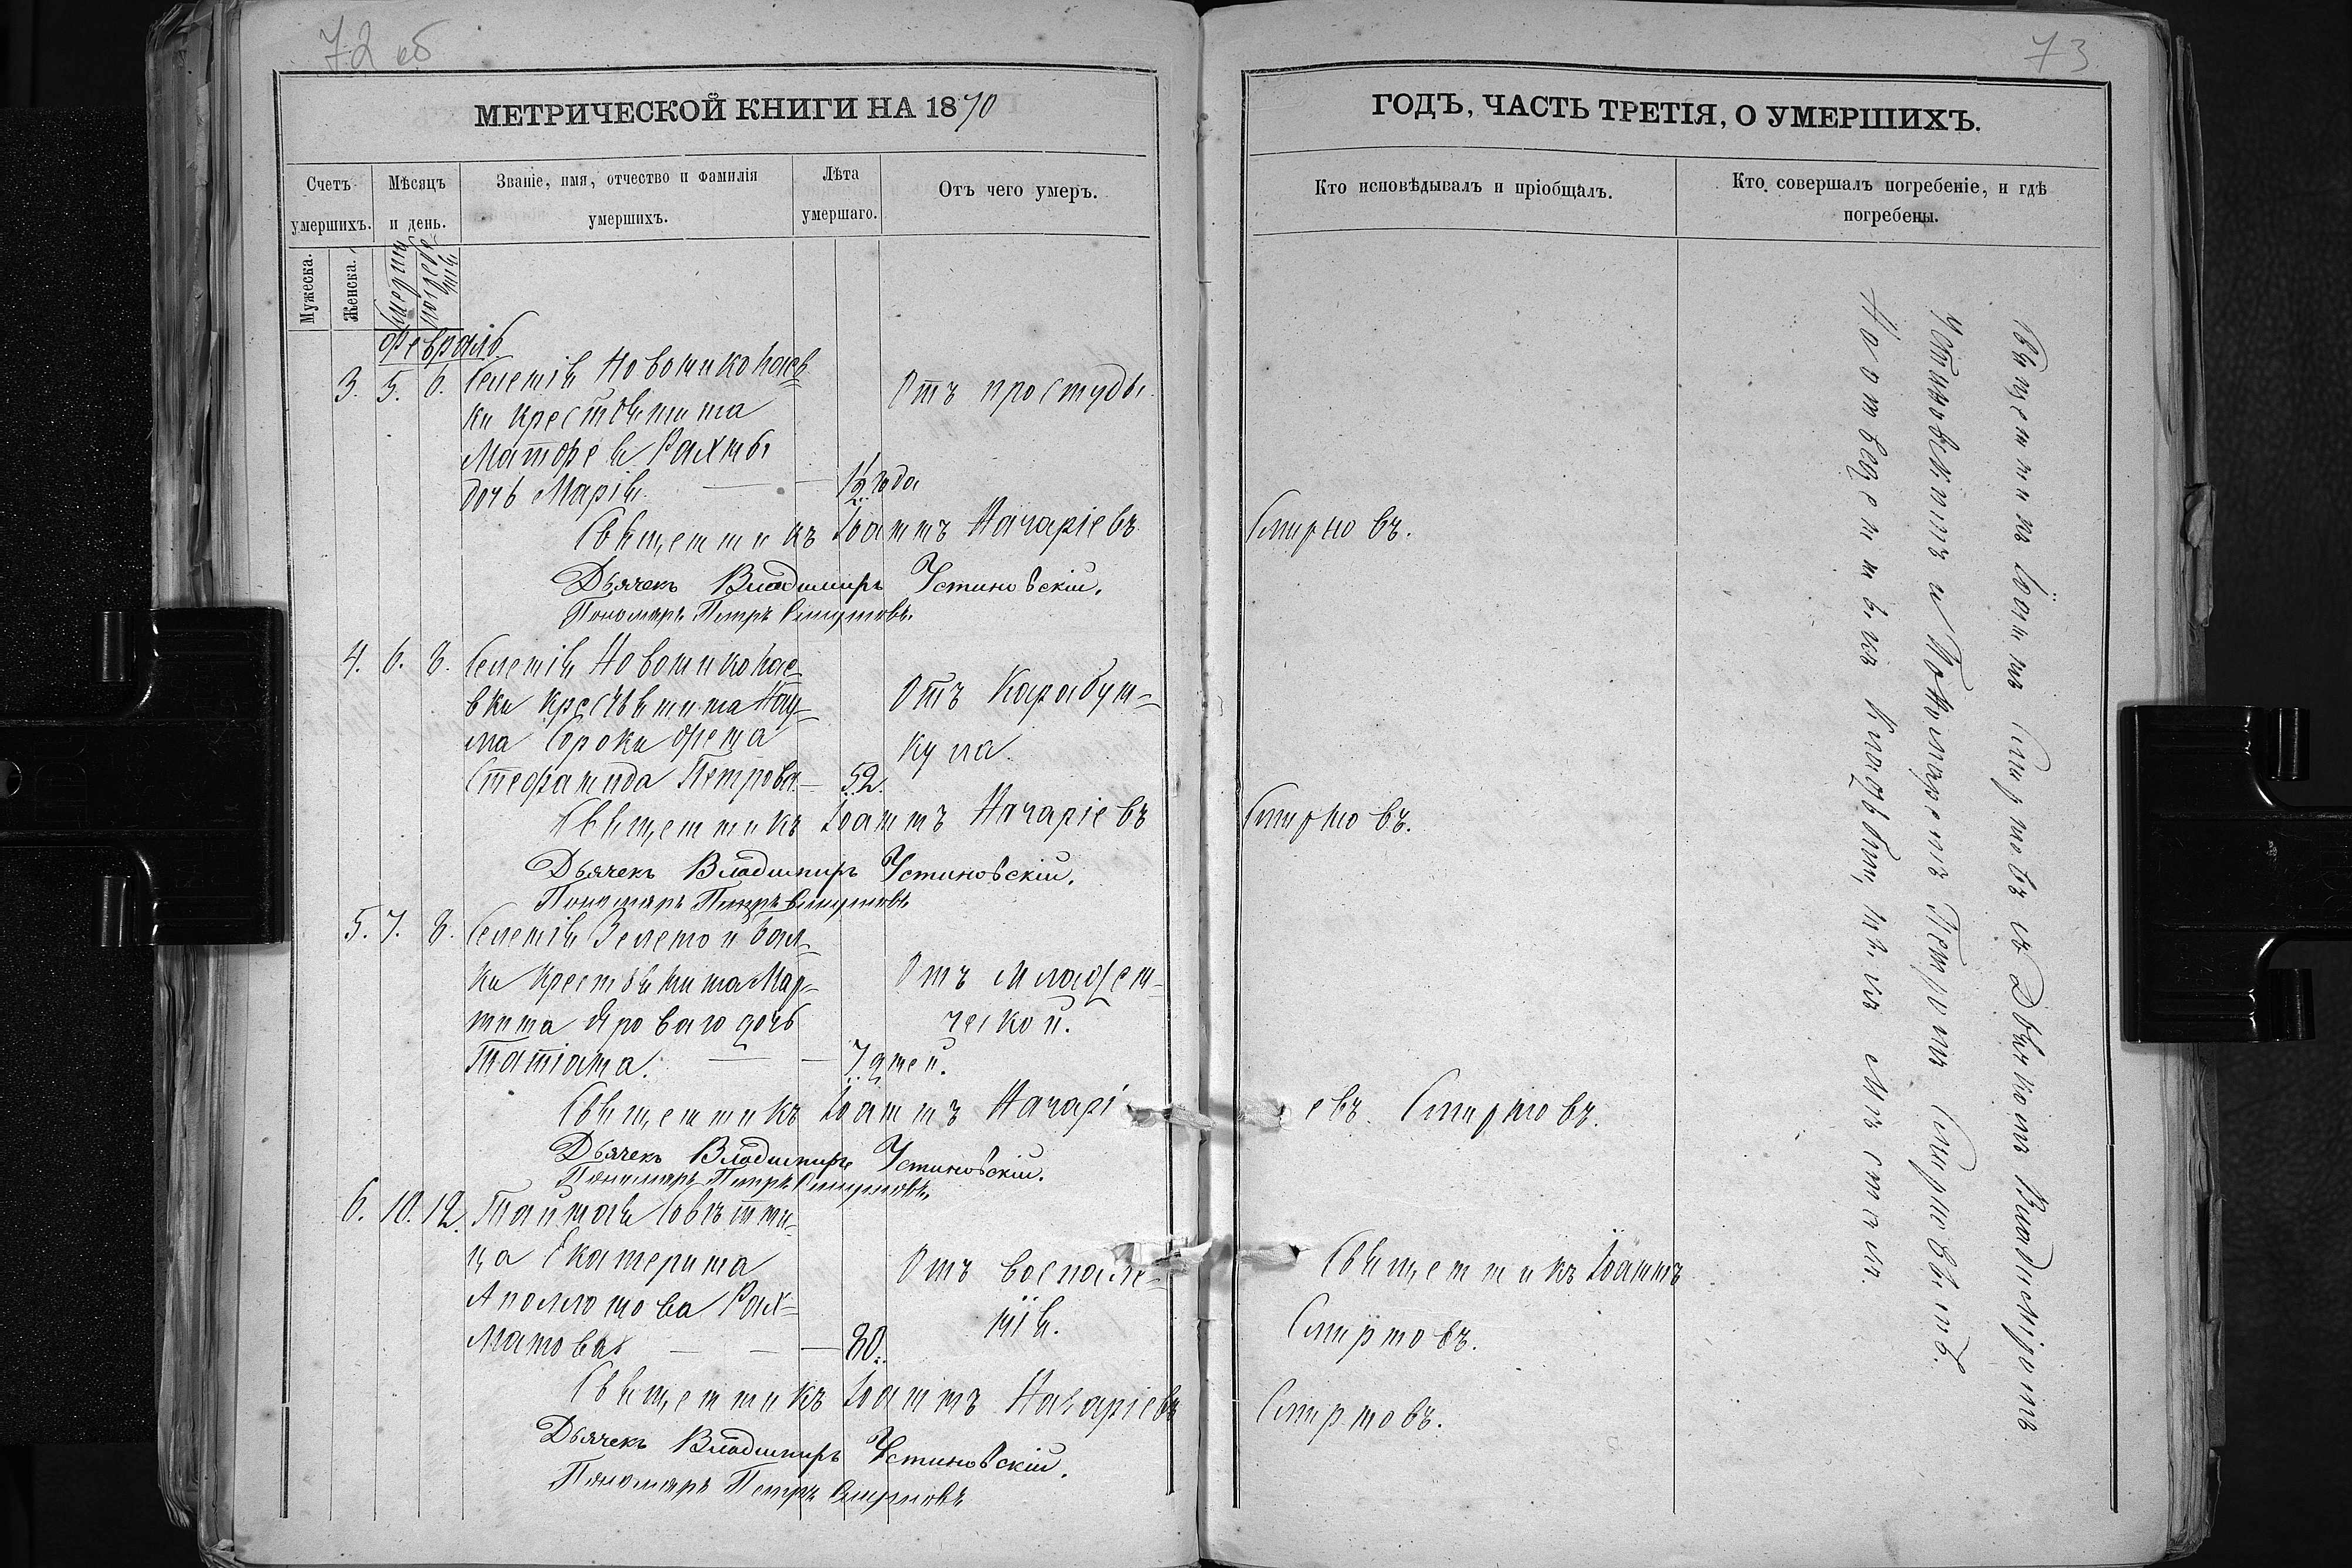 72 об
МЕТРИЧЕСКОЙ КНИГИ НА 1870
Счетъ умершихъ.
Мѣсяцъ и день.
Званіе, имя, отчество и фамилія умершихъ.
Лѣта умершаго.
Отъ чего умеръ.
Мужеска.
Женска.
Февраль
3. 5. 6. Селенія Новониколаев=
ки крестьянина
Матфея Рахны
дочь Марія. — — 1/2 года
Отъ простуды.
Священникъ Іоаннъ Начаріевъ
Дьячекъ Владимиръ Устиновскій.
Пономарь Петръ Смирновъ.
4. 6. 8. Селенія Новониколае=
вки крестьянина Нау=
ма Сороки жена
Стефанида Петрова — 52.
Отъ Карабун=
кула.
Священникъ Іоаннъ Начаріевъ
Дьячекъ Владимиръ Устиновскій.
Пономарь Петръ Смирновъ
5. 7. 8. Селенія Зеленой бал=
ки крестьянина Мар=
тина Яроваго дочь
Татіана. — — 7 дней.
Отъ младен=
ческой.
Священникъ Іоаннъ Начарі
Дьячекъ Владимиръ Устиновскій.
Пономарь Петръ Смирновъ.
6. 10. 12. Тайная Совѣтни=
ца Екатерина
Аполлонова Рах=
манова — — — 80.
Отъ воспале=
нія.
Священникъ Іоаннъ Начаріевъ
Дьячекъ Владимиръ Устиновскій.
Пономарь Петръ Смирновъ
73
ГОДЪ, ЧАСТЬ ТРЕТІЯ, О УМЕРШИХЪ.
Кто исповѣдывалъ и пріобщалъ.
Кто совершалъ погребеніе, и гдѣ погребены.
Смирновъ.
Смирновъ.
евъ. Смирновъ.
Священникъ Іоаннъ
Смирновъ.
Смирновъ.
Священникъ Іоаннъ Смирновъ съ Дьячкомъ Владиміромъ
Устиновскимъ и Пономаремъ Петромъ Смирновымъ.
На отведенныхъ кладбищныхъ мѣстахъ.